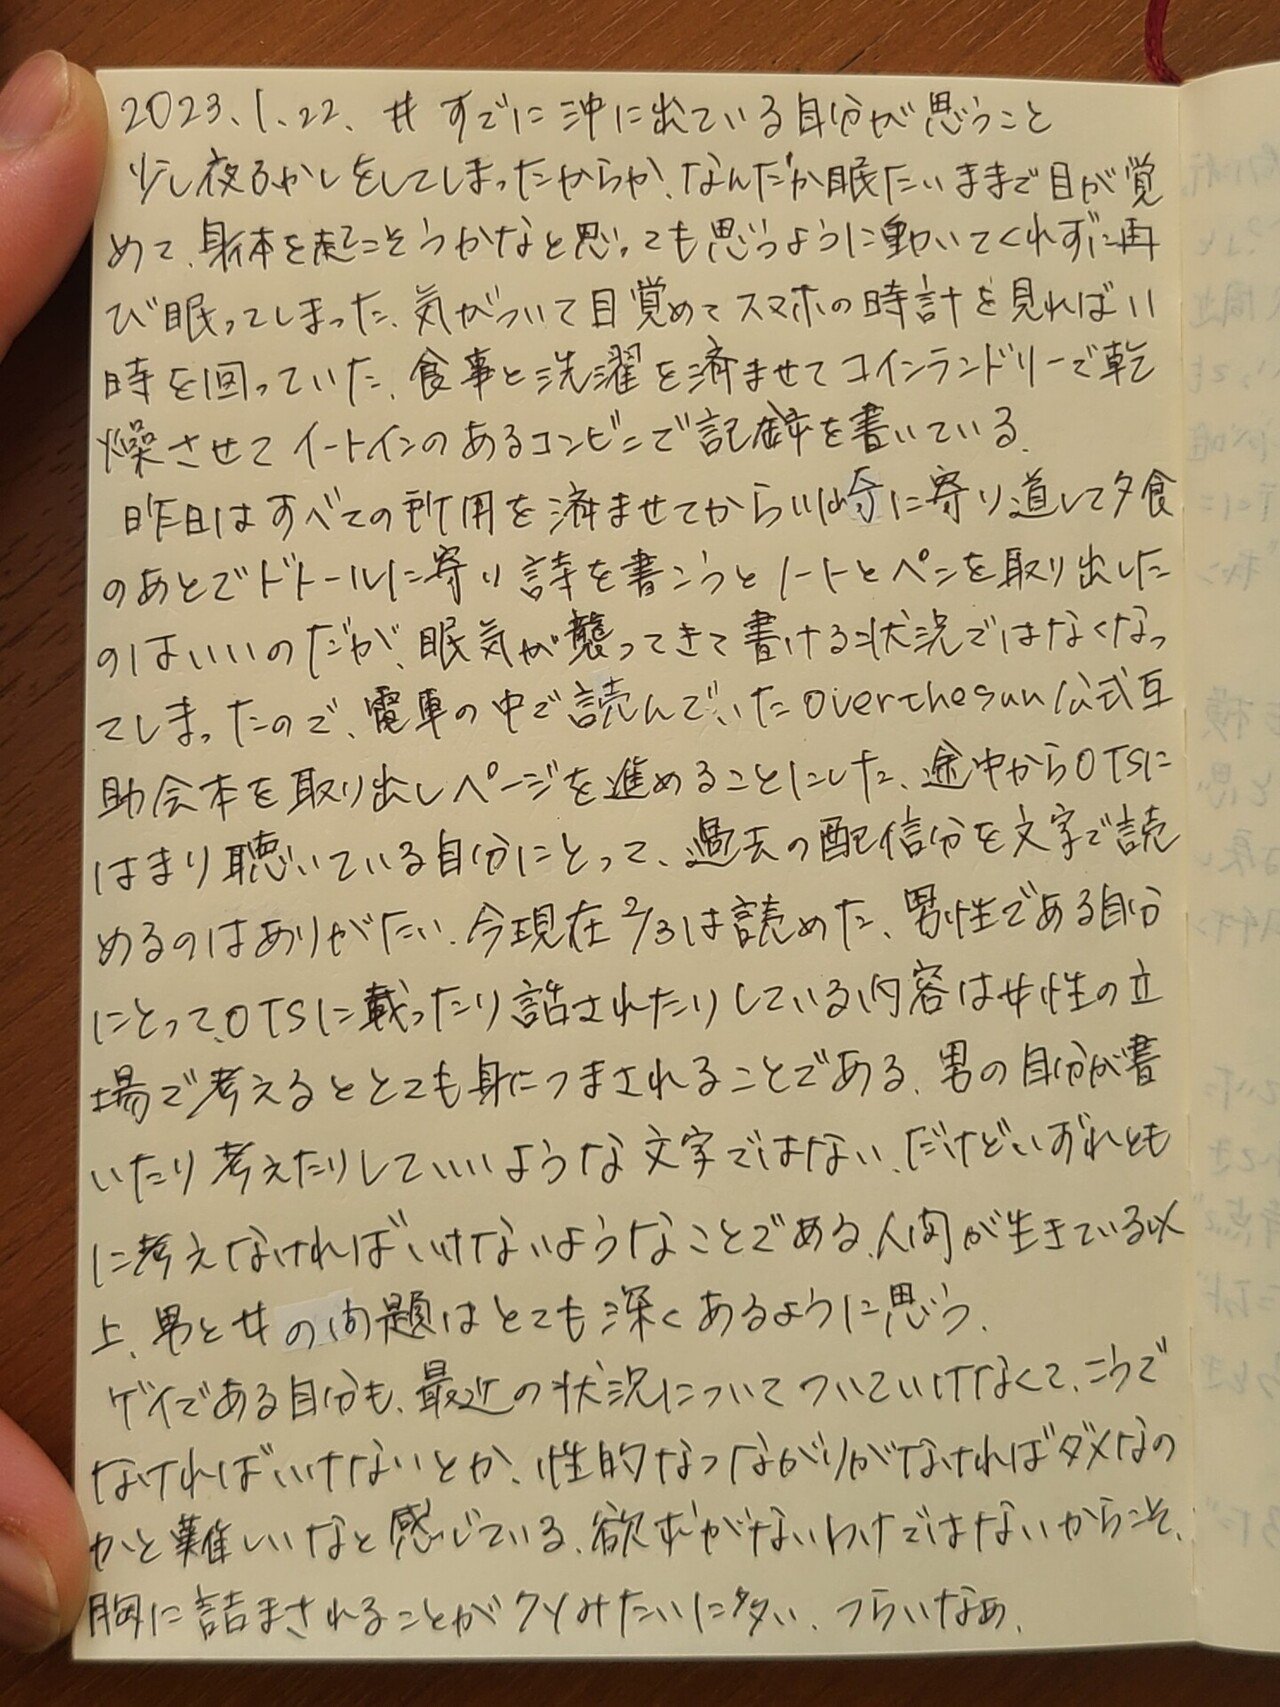 2023.1.22. # すでに沖に出ている自分が思うこと
少し夜ふかしをしてしまったからか、なんだか眠たいままで目が覚
めて、身体を起こそうかなと思っても思うように動いてくれずに再
び眠ってしまった、気がついて目覚めてスマホの時計を見れば11
時を回っていた、食事と洗濯を済ませてコインランドリーで乾
燥させてイートインのあるコンビニで記録を書いている。
昨日はすべての所用を済ませてから川崎に寄り道して夕食
のあとでドトールに寄り詩を書こうとノートとペンを取り出した
のはいいのだが、眠気が襲ってきて書ける状況ではなくなっ
てしまったので、電車の中で読んでいたoverthesun公式互
助会本を取り出しページを進めることにした、途中からOTSに
はまり聴いている自分にとって、過去の配信分を文字で読
めるのはありがたい、今現在2/3は読めた、男性である自分
にとって、OTSに載ったり話されたりしている内容は女性の立
場で考えるととても身につまされることである、男の自分が書
いたり考えたりしていいような文字ではない、だけどいずれとも
に考えなければいけないようなことである、人間が生きている以
上、男と女の問題はとても深くあるように思う、
ゲイである自分も、最近の状況についてついていけなくて、こうで
なければいけないとか、性的なつながりがなければダメなの
かと難しいなと感じている、欲ずがないわけではないからこそ、
胸に詰まされることがクソみたいに多い、つらいなぁ、